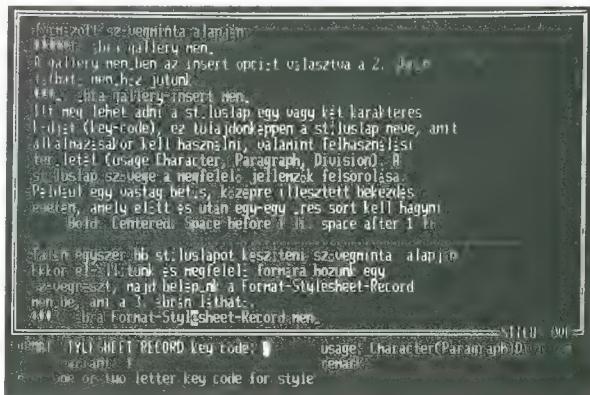 szövegminta alapján
ábra gallery men.
A gallery men.ben az insert opciót választva a 2.
men.höz jutunk
ábra gallery-insert men.
Itt meg lehet adni a st.luslap egy vagy két karakteres
kódját (key-code), ez tulajdonképpen a st.luslap neve, amit
alkalmazásakor kell használni, valamint felhasználási
területét (usage Character, Paragraph, Division). A
st.luslap szövege a megfelelő jellemzők felsorolása.
Például egy vastag bet.s, középre illesztett bekezdés
esetén, amely előtt és után egy-egy .res sort kell hagyni
Bold. Centered. Space before 1 li. space after 1 li
egyszer.bb st.luslapot készíteni szövegminta alapján
Ekkor el. .tunk és megfelelő formára hozunk egy
szövegrészt, majd belép.nk a Format-Stylesheet-Record
men.be, ami a 3. ábrán látható.
ábra Format-Stylesheet-Record men.
FORMAT STYLESHEET RECORD key code: usage: Character(Paragraph)D
variant: 1 remark:
one or two letter key code for style